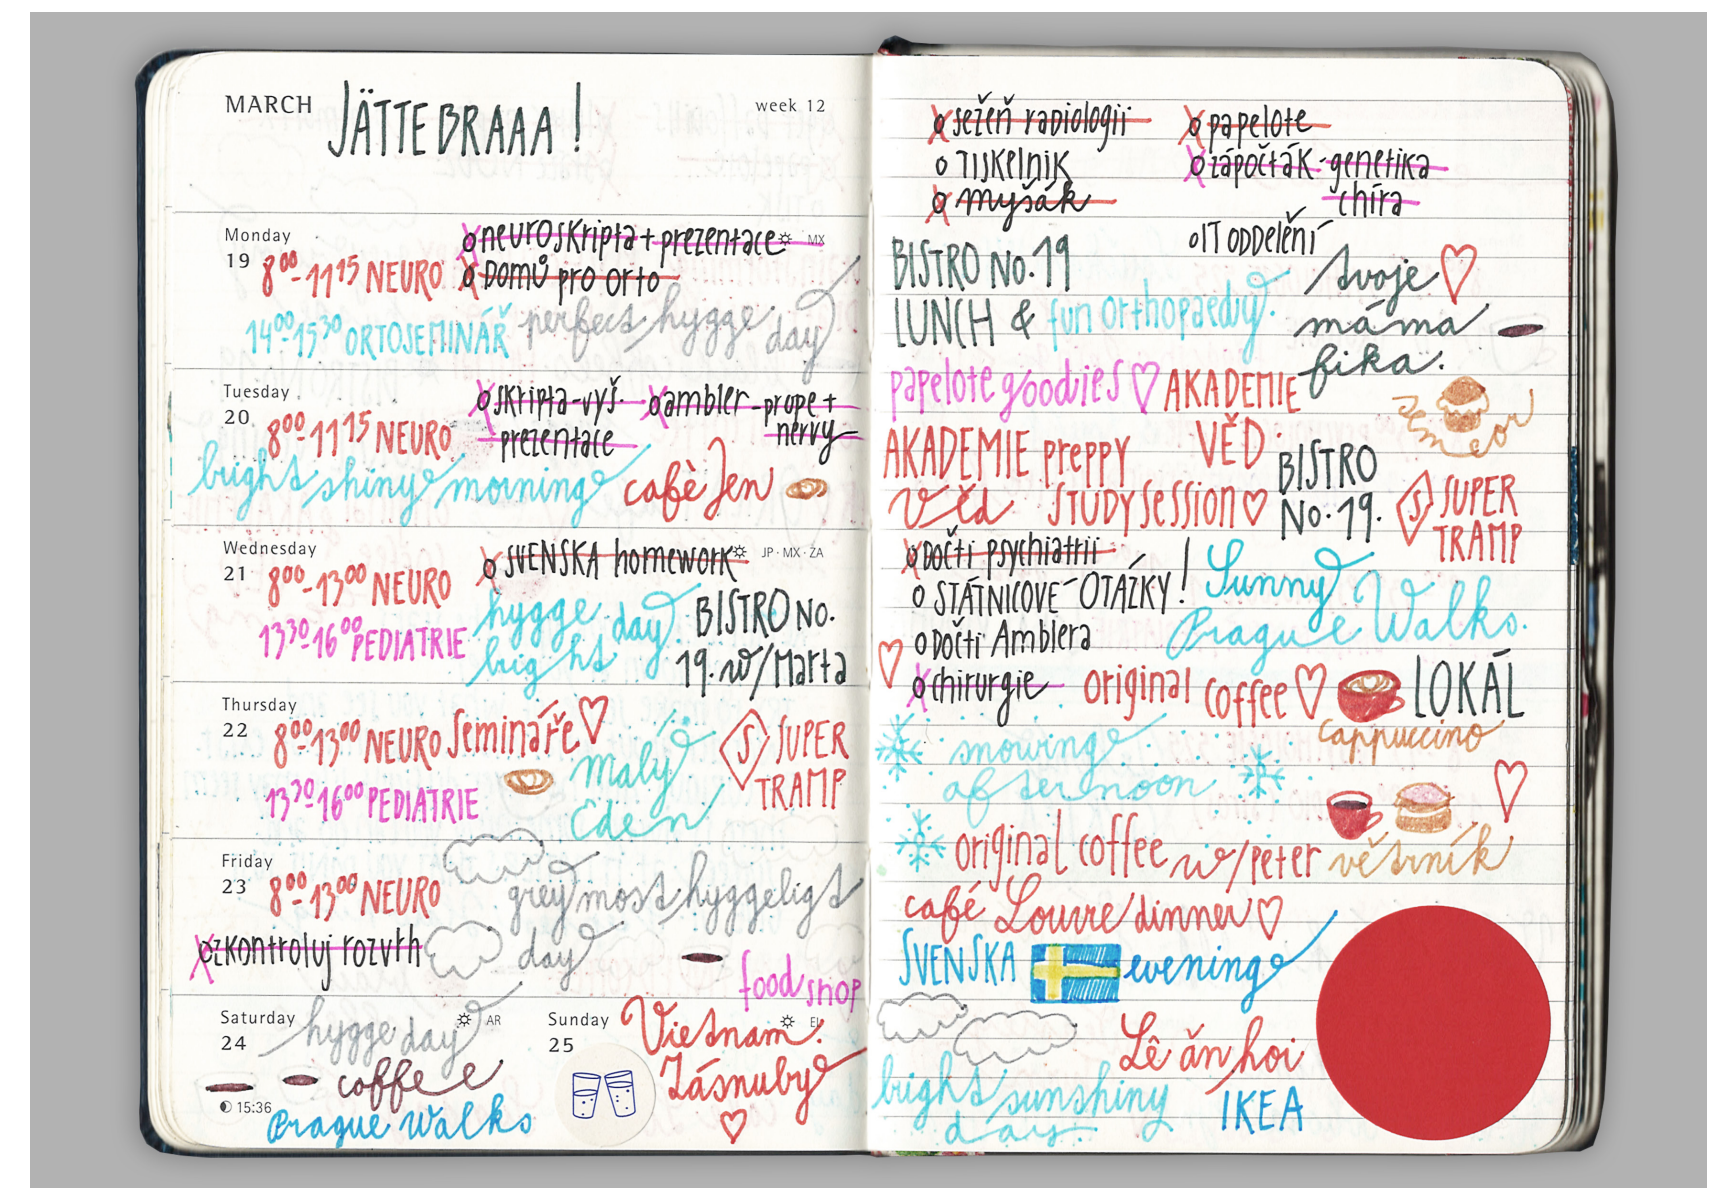 MARCH
JÄTTEBRAAA!
week 12
Monday
19
8⁰⁰-11¹⁵ NEURO
neuroskripta + prezentace
MX
Domů pro orto
14⁰⁰-15³⁰ ORTOSEMINÁŘ
perfect hygge day
Tuesday
20
8⁰⁰-11¹⁵ NEURO
skripta-vyš.
prezentace
ambler-prope +
nervy
bright shiny morning
cafè Jen
Wednesday
21
8⁰⁰-13⁰⁰ NEURO
SVENSKA homework
JP · MX · ZA
13³⁰-16⁰⁰ PEDIATRIE
hygge day.
bright
BISTRO No.
19. w/Marta
Thursday
22
8⁰⁰-13⁰⁰ NEURO Semináře
13³⁰-16⁰⁰ PEDIATRIE
malý
Eden
S SUPER
TRAMP
Friday
23
8⁰⁰-13⁰⁰ NEURO
grey most hyggeligt
day
zkontroluj rozvrh
food shop
Saturday
24
AR
hygge day
coffee
15:36
Prague Walks
Sunday
25
Vietnam.
Zásnuby
sežeň radiologii
Tiskelnik
myšák
papelote
zápočťák-genetika
chira
IT oddělení
BISTRO No. 19
LUNCH & fun orthopaedy.
tvoje
máma
fika.
papelote goodies
AKADEMIE
VĚD.
AKADEMIE preppy
Věd STUDY session
BISTRO
No. 19.
S SUPER
TRAMP
Dočti psychiatrii
STÁTNICOVÉ OTÁZKY!
Dočti Amblera
chirurgie
Sunny
Prague Walks.
original coffee
LOKÁL
cappuccino
snowing
afternoon
original coffee w/Peter
větrník
café Louvre dinner
SVENSKA evening
Lê ăn hoi
bright sunshiny
day.
IKEA